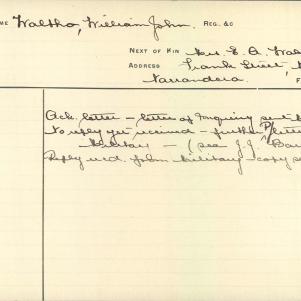 ME Waltho, William John. REG. &C
NEXT OF KIN Mrs. E. A. Wal
ADDRESS Frank Street, N
Narrandera. F
Ack. letter – letter of Inquiry sent
No reply yet received – further letter
Military – (see J.J. Bar
Reply recd. from Military – copy s